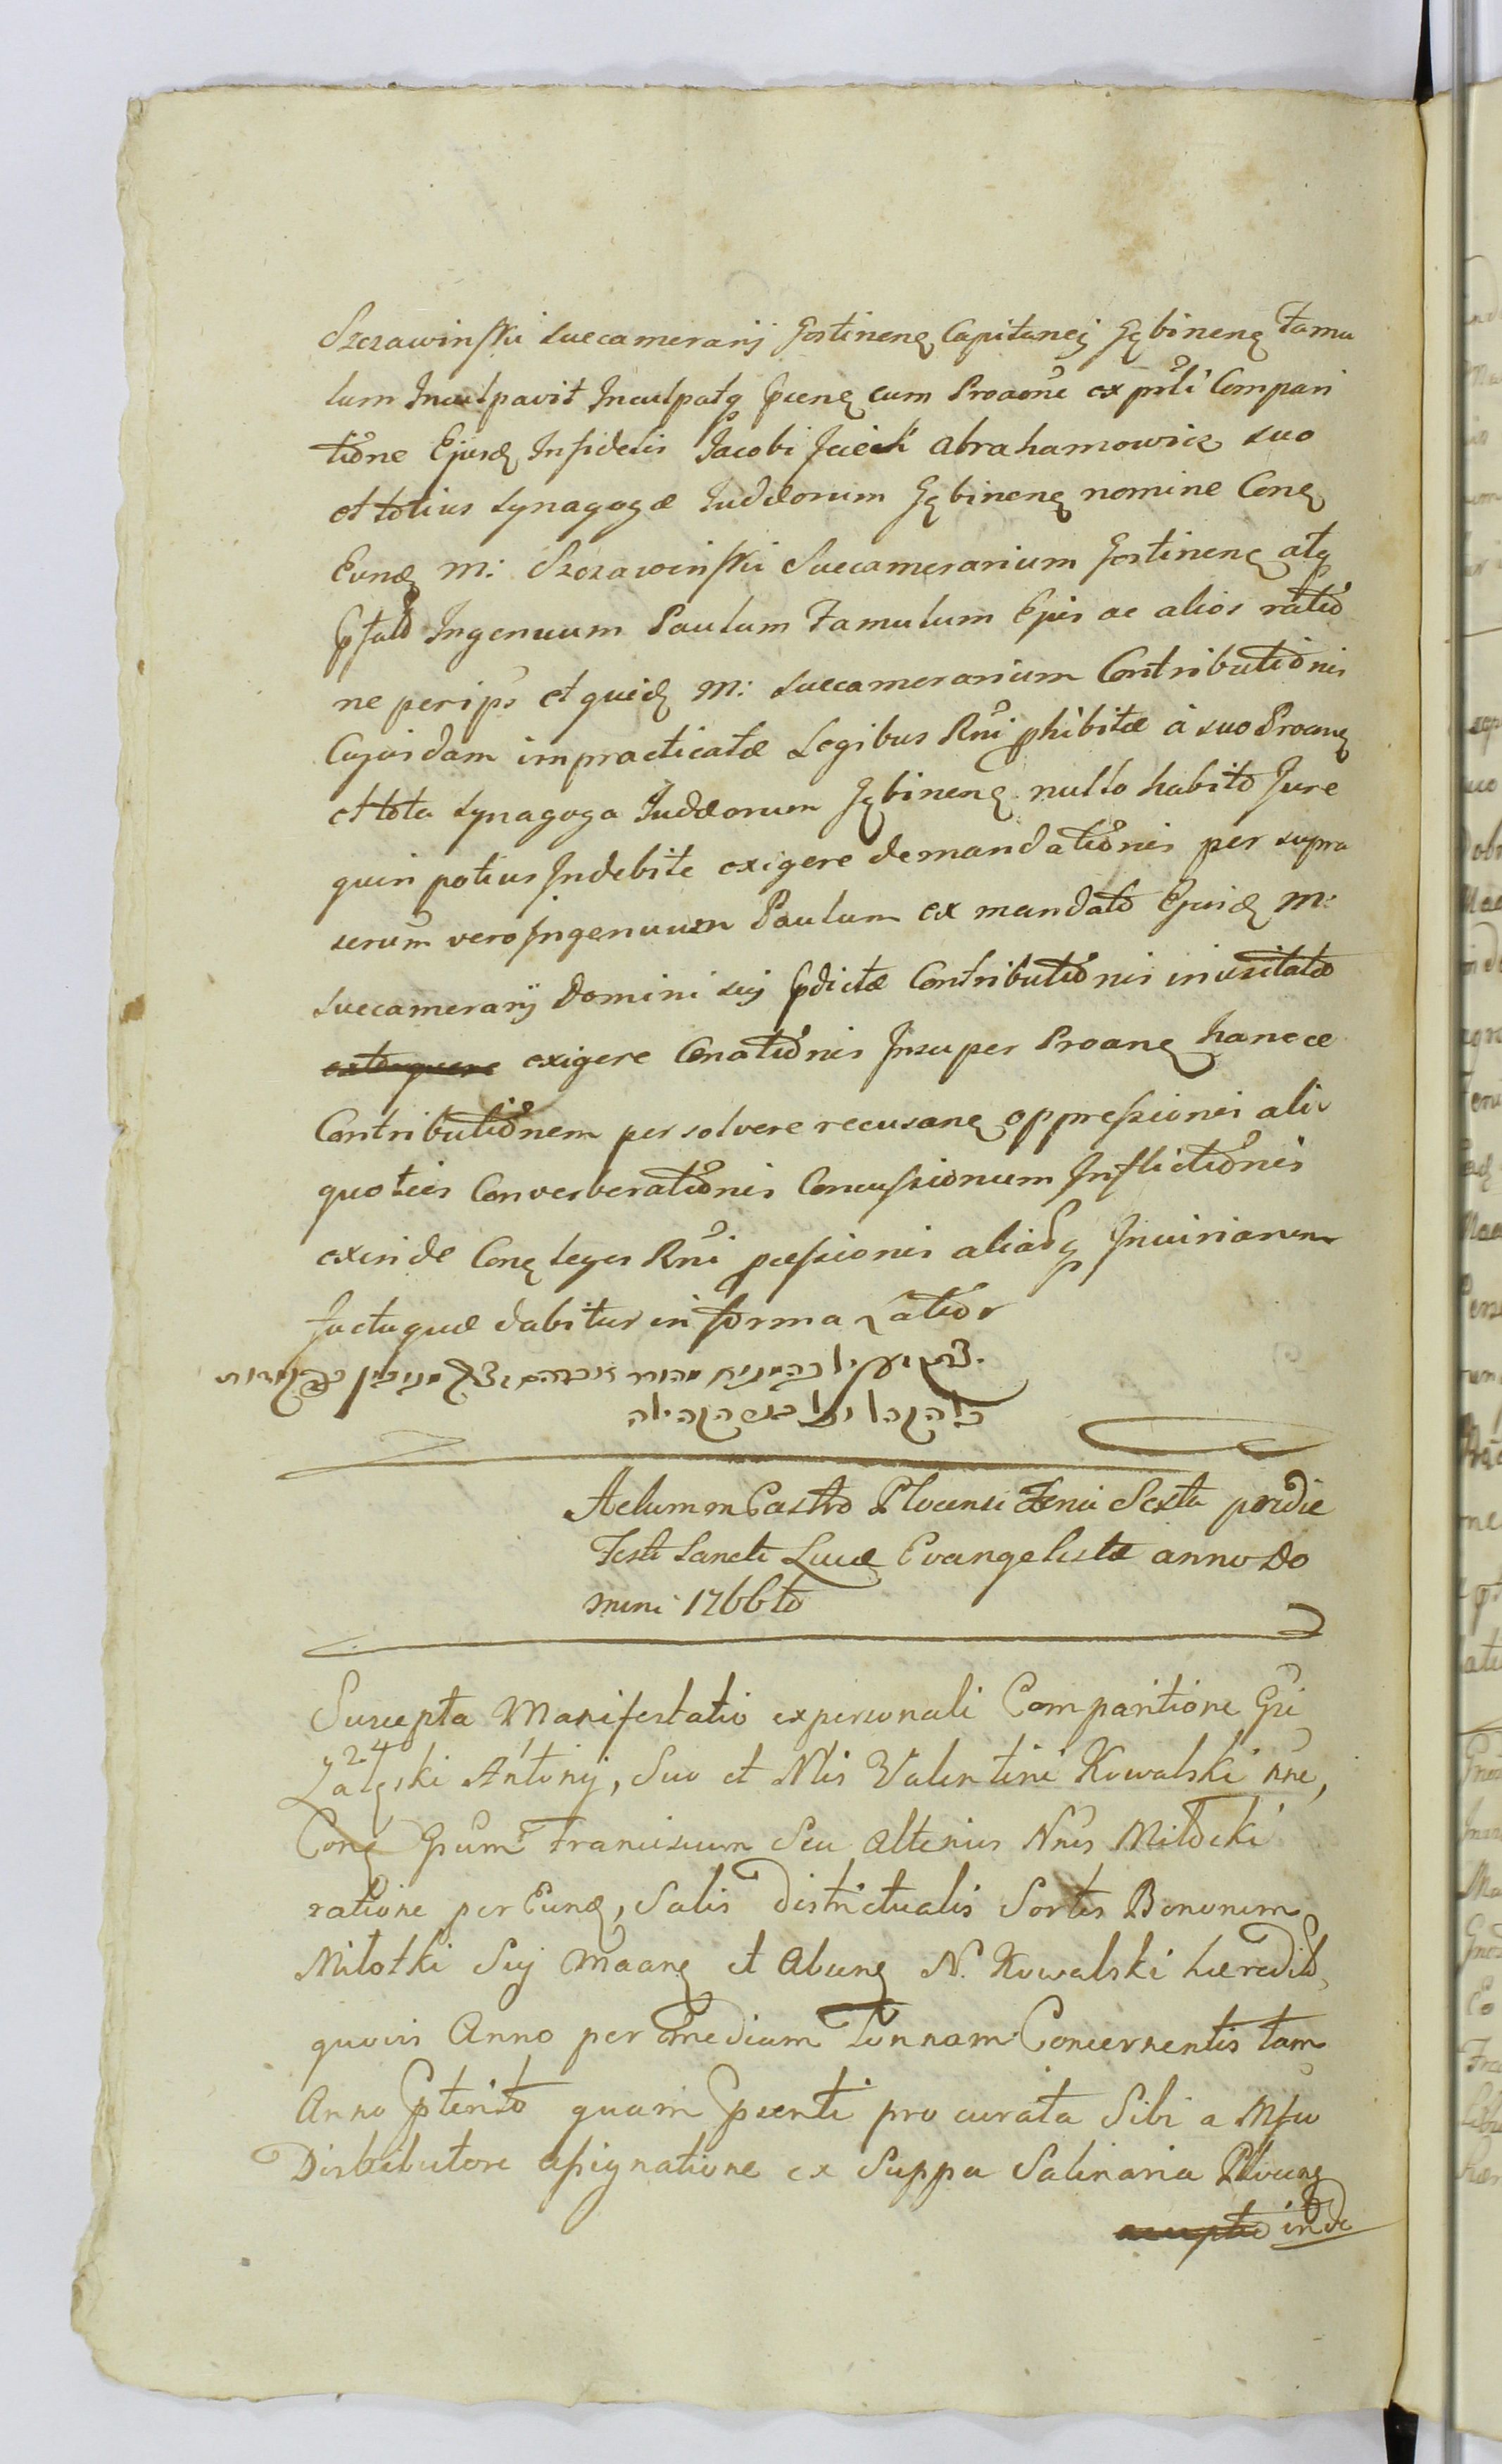 Szczawinski Succamerarij Gostinenę Capitanei Gębinenę Famu
lum Inculpavit Inculpatq̨ cum Proãoñe ex prsli Compari
tiõne Ejusd Infidelis Jacobi Jcick Abrahamowicz suo
et totius Synagogæ Judæorum Gębinenę nomine Conę
Eund M: Szczawinski Succamerarium Gostinenę atq̨
Ingenuum Paulum Famulum Ejus ac alios ratiõ
ne per ips et quid M: Succamerarium Contributiõnis
Cujusdam impracticatæ Legibus Rñi phibitæ à suo Proanę
et tota Synagoga Judæorum Gębinenę nullo habito Jure
quin potius Indebite exigere demandatiõnis per supra
serum vero Ingenuum Paulum ex mandato Ejusd M:
Succamerarij Domini sui pdictæ Contributiõnis inusitato
exigere Conatiõnis Insuper Proanę hancce
Contributiõnem persolvere recusanę oppressionis ali
quoties Converberatiõnis Concussionum Inflictiõnis
exinde Conę leges Rñi pcessionis aliasq̨ Iniuriarum
factaquæ dabitur in forma Latiõr
Actum in Castro Plocensi Feria Sexta pridie
Festi Sancti Lucæ Evangelistæ anno Do
mini 1766to
Suscepta Manifestatio ex personali Comparitione Gsi
Zalęski Antonij, Suo et Nlis Valentini Kowalski nne,
Conę Gsum Franciscum Seu alterius Nnis Milocki
ratione per Eund, Salis districtualis Sortis Bonorum
Milotki Suj Maanę et Abunę N. Kowalski hæredit,
quovis Anno per mediam Tonnam Concernentis tam
Anno pterito quam psenti procurata Sibi a Mfco
Distributore assignatione ex Suppa Salinaria Plocenę
inde